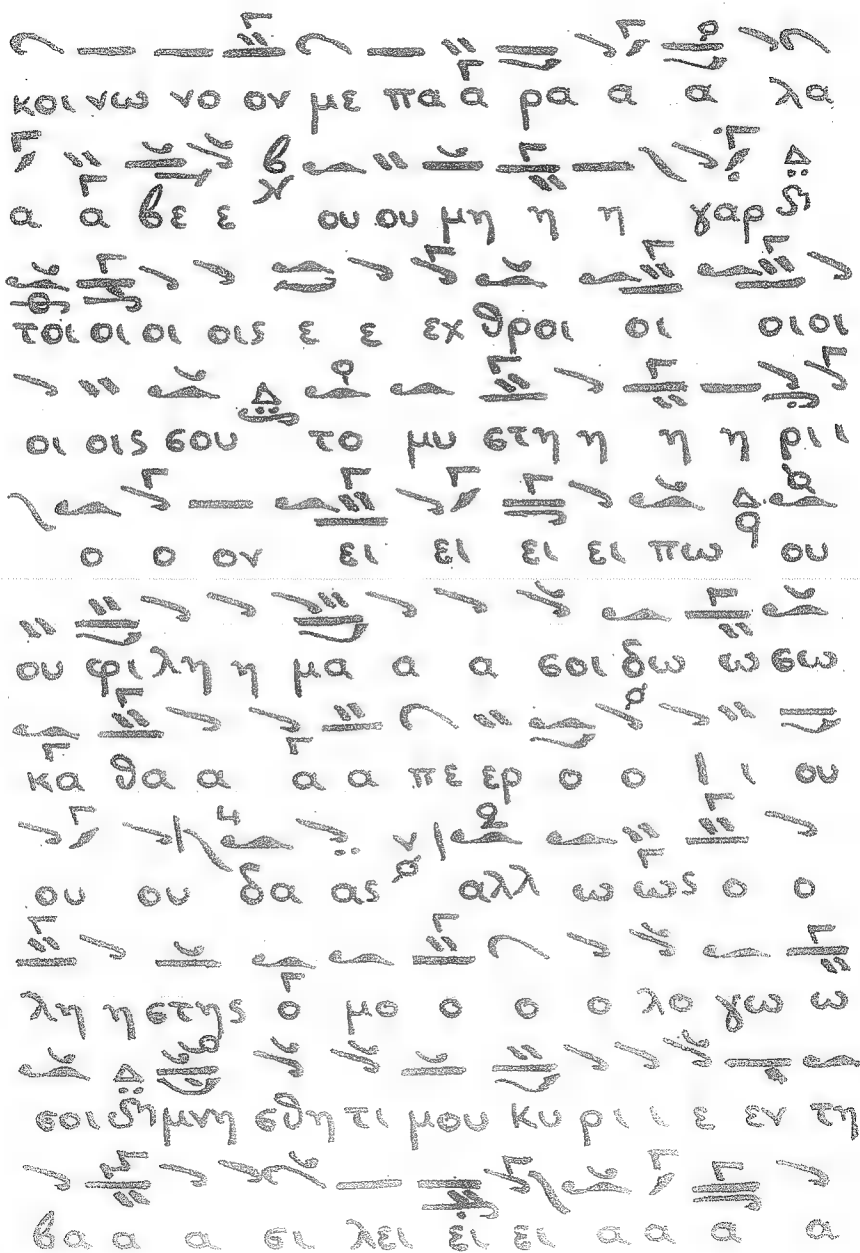 κοι νω νο ον με πα α ρα α α λα
α α βε ε ου ου μη η η γαρ
τοι οι οι οις ε ε εχ θροι οι οι οι
οι οις σου το μυ στη η η η ρι ι
ο ο ον ει ει ει ει πω ου
ου φι λη η μα α α σοι δω ω σω
κα θα α α α πε ερ ο ο ι ι ου
ου ου δα ας αλλ ω ως ο ο
λη η στης ο μο ο ο ο λο γω ω
σοι μνη σθη τι μου κυ ρι ι ε εν τη
βα α α σι λει ει ει α α α α